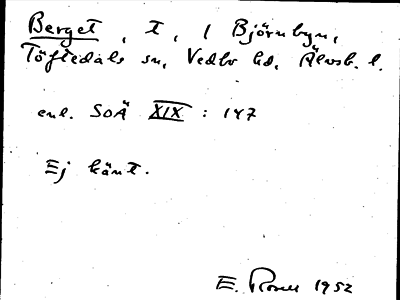 Berget, t, i Björnbyn,
Töftedals sn, Vedbo hd, Älvsb. l.
enl. SOÄ XIX : 147
Ej känt.
E. 1952